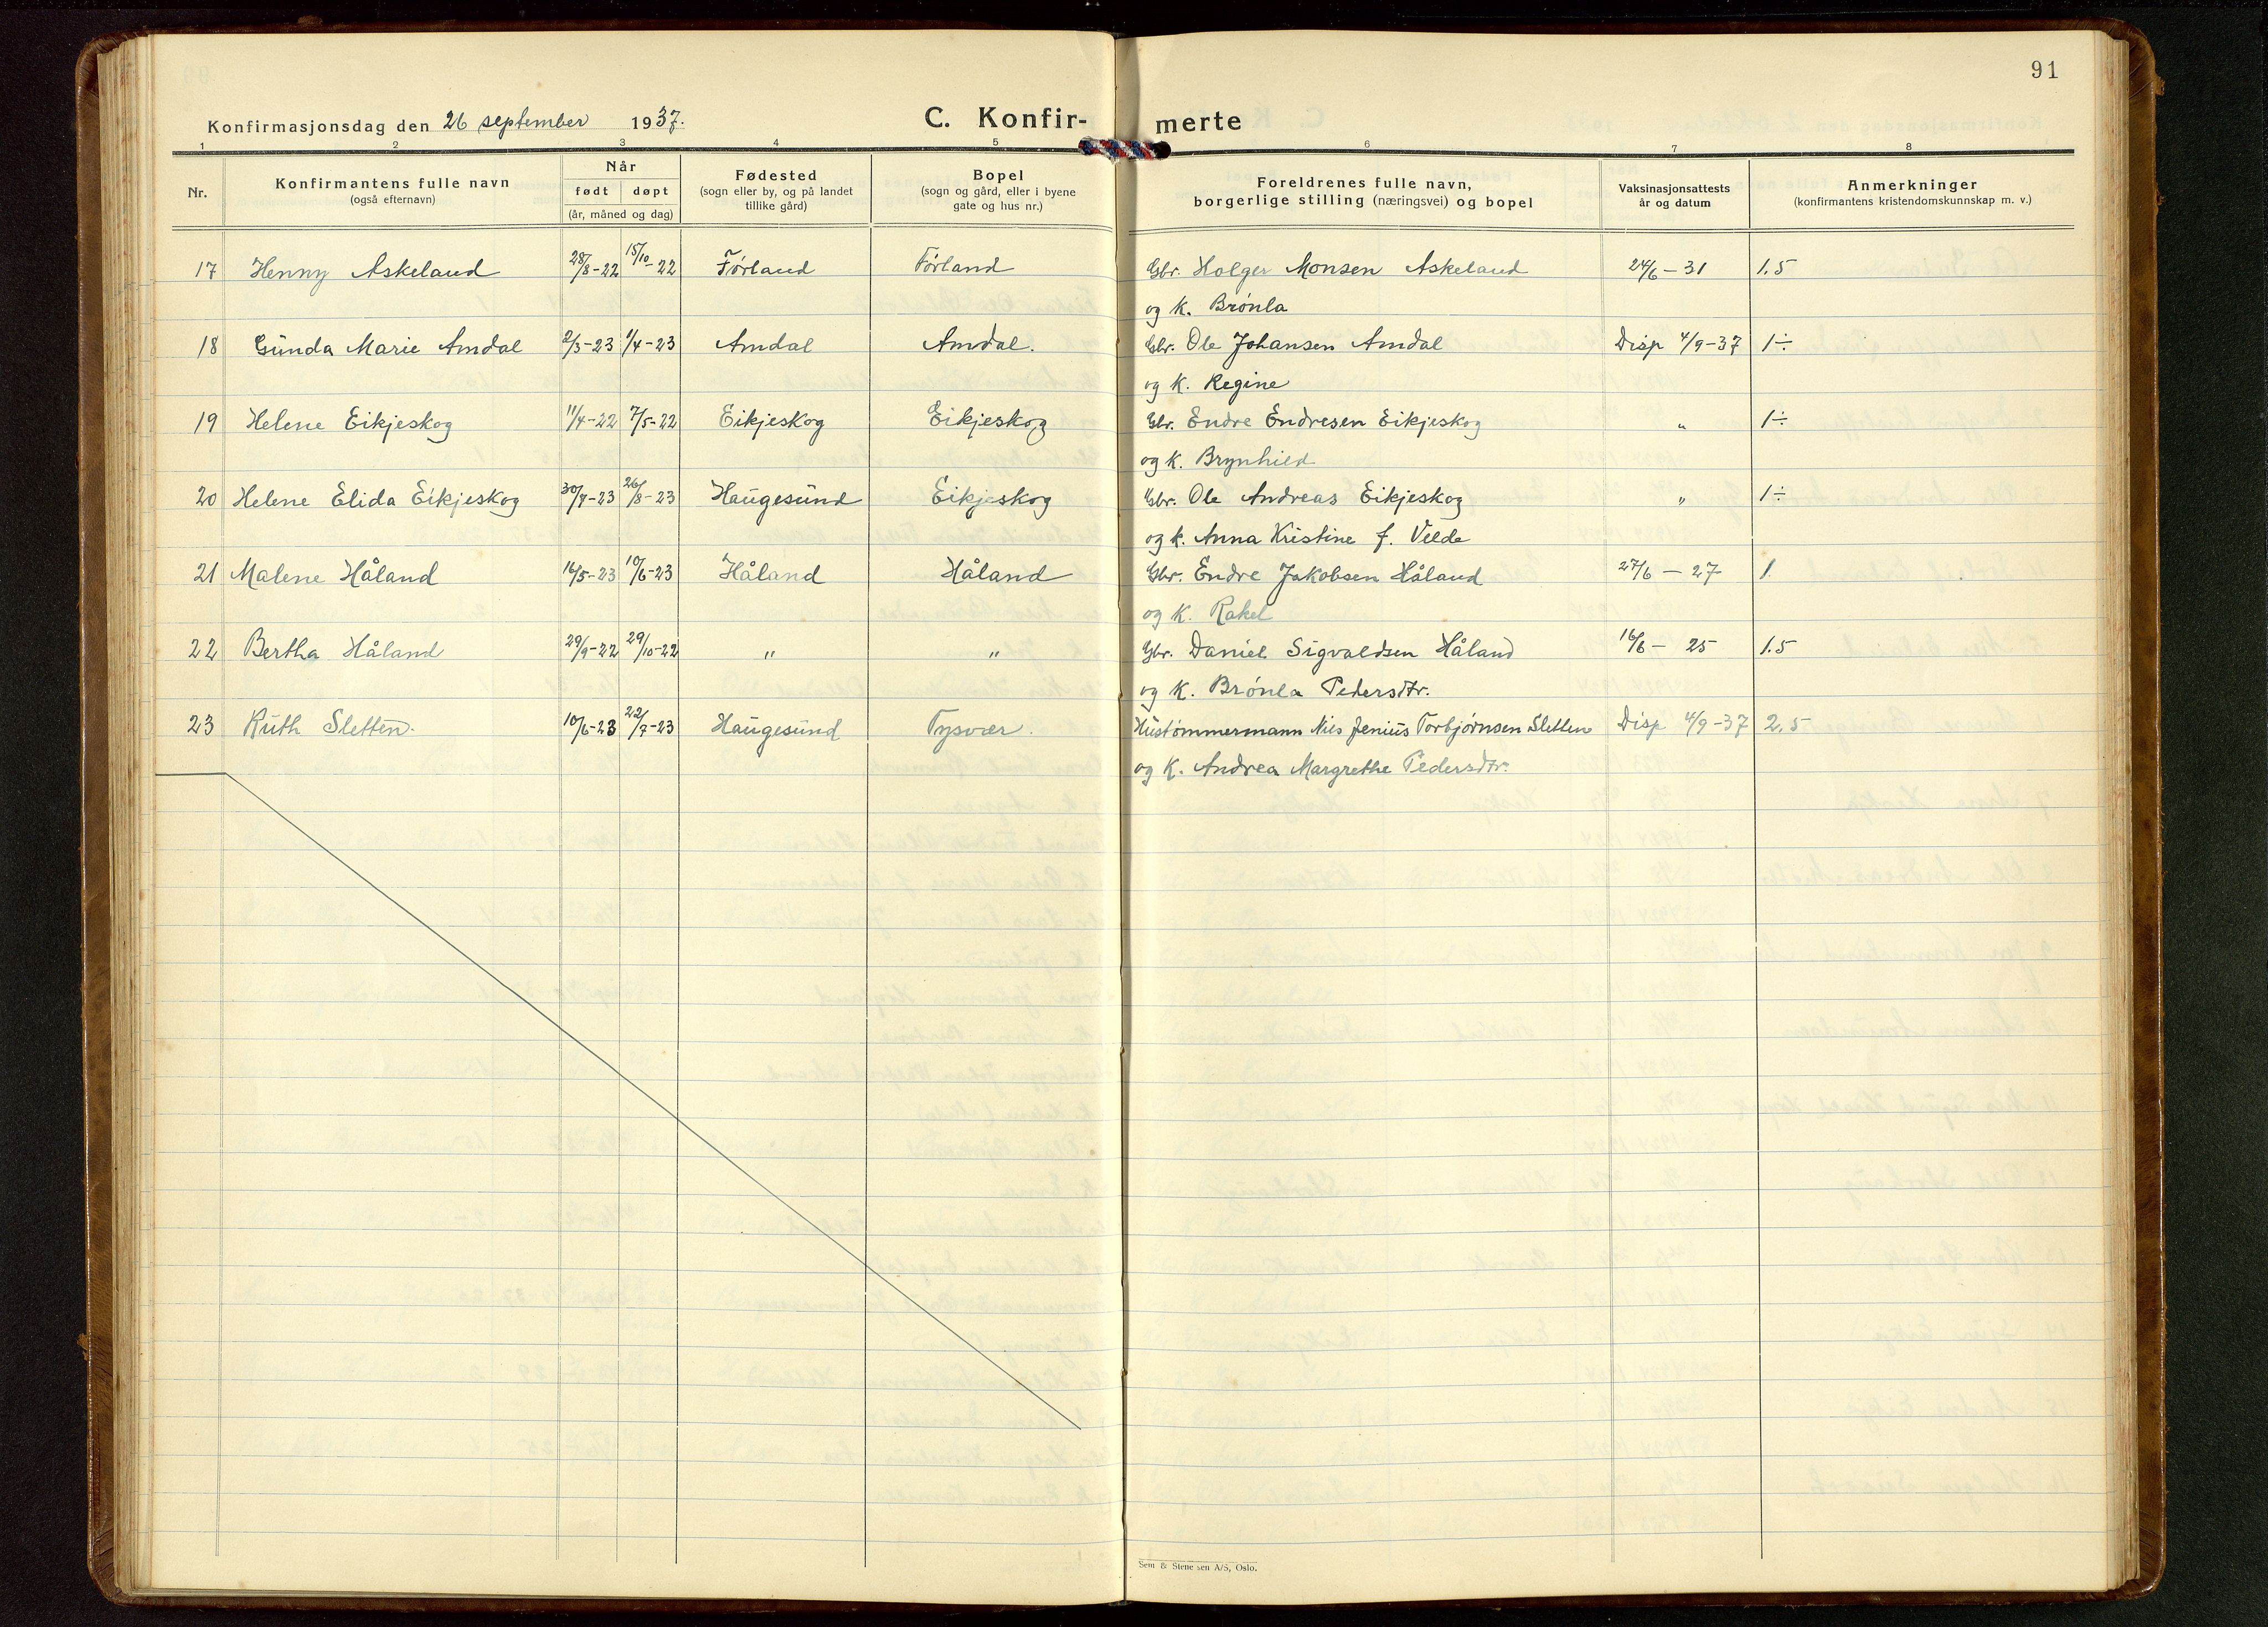 91
Konfirmasjonsdag den 26 september 1937.
C. Konfir- merte
1 2 3 4 5 6 7 8
Nr.
Konfirmantens fulle navn
(også efternavn)
Når
født døpt
(år, måned og dag)
Fødested
(sogn eller by, og på landet
tillike gård)
Bopel
(sogn og gård, eller i byene
gate og hus nr.)
Foreldrenes fulle navn,
borgerlige stilling (næringsvei) og bopel
Vaksinasjonsattests
år og datum
Anmerkninger
(konfirmantens kristendomskunnskap m. v.)
17 Henny Askeland 28/8-22 15/10-22 Førland Førland Gbr. Holger Monsen Askeland 24/6-31 1.5
og k. Brønla
18 Gunda Marie Amdal 2/3-23 1/4-23 Amdal Amdal. Gbr. Ole Johansen Amdal Disp 4/9-37 1÷
og k. Regine
19 Helene Eikjeskog 11/4-22 7/5-22 Eikjeskog Eikjeskog Gbr. Endre Endresen Eikjeskog " 1÷
og k. Brynhild
20 Helene Elida Eikjeskog 30/7-23 26/8-23 Haugesund Eikjeskog Gbr. Ole Andreas Eikjeskog " 1÷
og k. Anna Kristine f. Velde
21 Malene Håland 16/5-23 10/6-23 Håland Håland Gbr. Endre Jakobsen Håland 27/6-27 1.
og k. Rakel
22 Bertha Håland 29/9-22 29/10-22 " " Gbr. Daniel Sigvaldsen Håland 16/6-25 1.5
og k. Brønla Pedersdtr.
23 Ruth Sletten. 10/6-23 22/7-23 Haugesund Tysvær. Hustømmermann Nils Jenius Torbjørnsen Sletten Disp 4/9-37 2.5
og k. Andrea Margrethe Pedersdtr.
Sem & Stenersen A/S, Oslo.